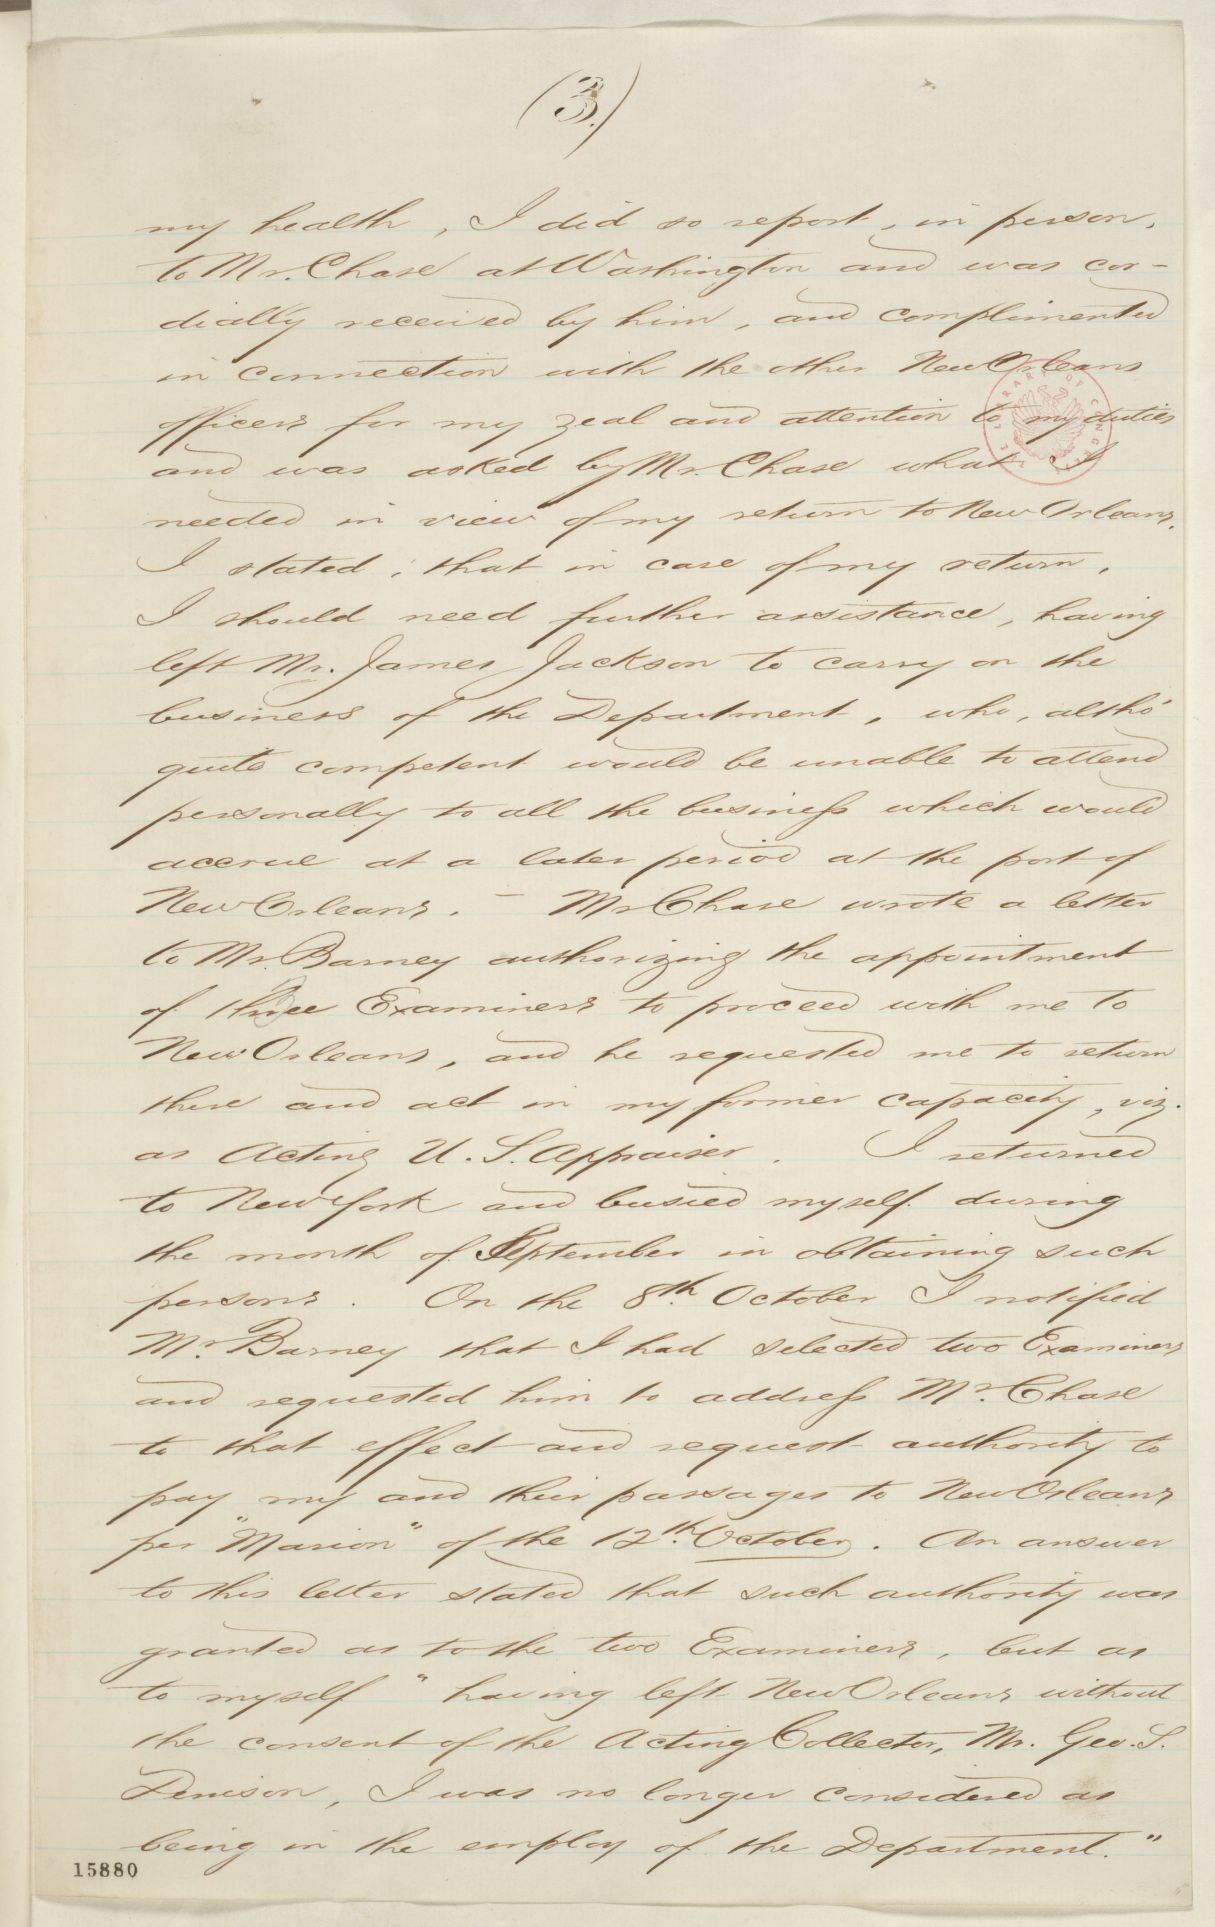 (3.)
my health, I did so report, in person,
to Mr. Chase at Washington and was cor-
dially received by him, and complimented
in connection with the other New Orleans
officers for my zeal and attention to my duties
and was asked by Mr. Chase what I
needed in view of my return to New Orleans.
I stated; that in case of my return,
I should need further assistance, having
left Mr. James Jackson to carry on the
business of the Department, who, altho'
quite competent would be unable to attend
personally to all the business which would
accrue at a later period at the port of
New Orleans. – Mr Chase wrote a letter
to Mr. Barney authorizing the appointment
of three Examiners to proceed with me to
New Orleans, and he requested me to return
there and act in my former capacity, viz.
as Acting U. S. Appraiser. I returned
to New York and busied myself during
the month of September in obtaining such
persons. On the 8th. October I notified
Mr. Barney that I had selected two Examiners
and requested him to address Mr. Chase
to that effect and request authority to
pay my and their passages to New Orleans
per "Marion" of the 12th. October. An answer
to this letter stated that such authority was
granted as to the two Examiners, but as
to myself "having left New Orleans without
the consent of the Acting Collector, Mr. Geo. S.
Denison, I was no longer considered as
being in the employ of the Department."
15880
THE LIBRARY OF CONGRESS